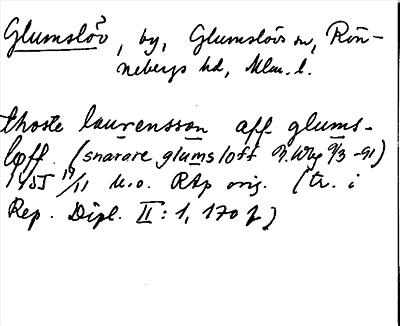 Glumslöv, by, Glumslövs sn, Rön-
nebergs hd, Mlm. l.
thoste laurensson aff glums-
løff. (snarare glumsloff N.Wbg 9/3 -91)
1455 17/11 U.o. RAp orig. (tr. i
Rep. Dipl. II: 1, 170 f)